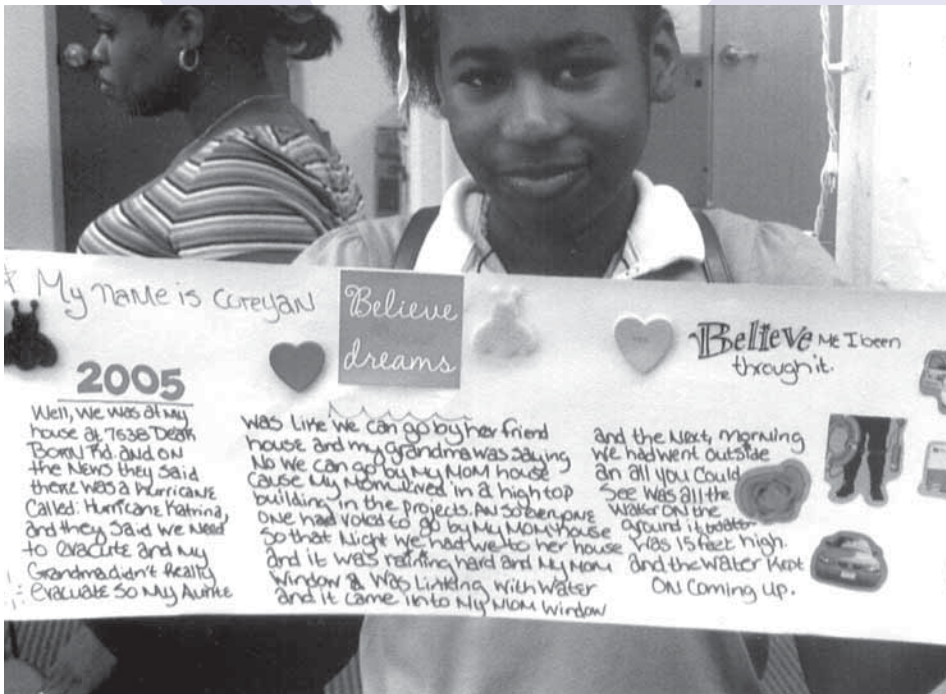 My name is Cureyan
Believe
dreams
Believe Me I been
through it.
2005
Well, we was at My
house at 7638 Dear
Born Rd. and on
the News they said
there was a hurricane
Called: Hurricane Katrina,
and they said we Need
to evacute and My
Grandma didn't Really
evacuate so My Auntie
was like we can go by her friend
house and my grandma was saying
No we can go by My Mom house
Cause My Mom lived in a high top
building in the projects. An so everyone
one had voted to go by My Mom house
so that Night we had we to her house
and it was raining hard and My Mom
Window & Was Linking with water
and it came in to My Mom Window
and the Next, morning
we had went outside
an all you Could
See was all the
Water ON the
ground it
was 15 feet high.
and the water Kept
ON Coming up.